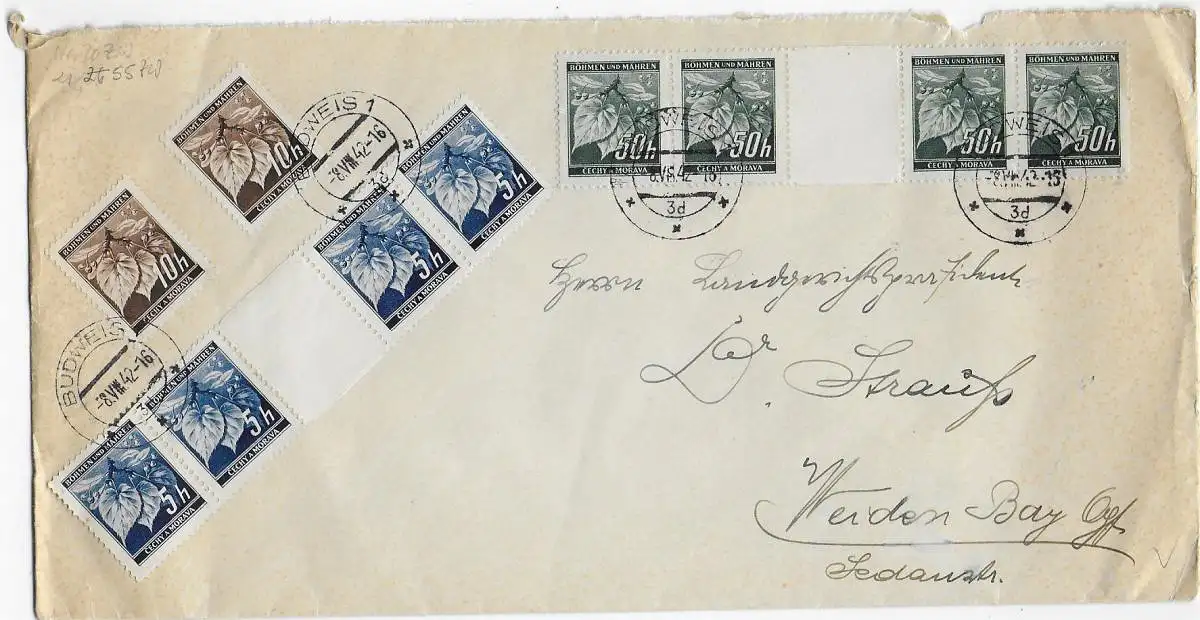 BÖHMEN UND MÄHREN
50h
ČECHY A MORAVA
BÖHMEN UND MÄHREN
50h
ČECHY A MORAVA
BÖHMEN UND MÄHREN
50h
ČECHY A MORAVA
BÖHMEN UND MÄHREN
50h
ČECHY A MORAVA
BUDWEIS
-8.VIII.42-16
3d
BUDWEIS
-8.VIII.42-15
3d
BÖHMEN UND MÄHREN
10h
ČECHY A MORAVA
BUDWEIS 1
-8.VIII.42-16
3d
BÖHMEN UND MÄHREN
5h
ČECHY A MORAVA
BÖHMEN UND MÄHREN
5h
ČECHY A MORAVA
BÖHMEN UND MÄHREN
10h
ČECHY A MORAVA
BUDWEIS
-8.VIII.42-16
3d
BÖHMEN UND MÄHREN
5h
ČECHY A MORAVA
BÖHMEN UND MÄHREN
5h
ČECHY A MORAVA
Herrn Landgerichtspräsident
Dr. Strauß
Weiden Bay
Sedanstr.